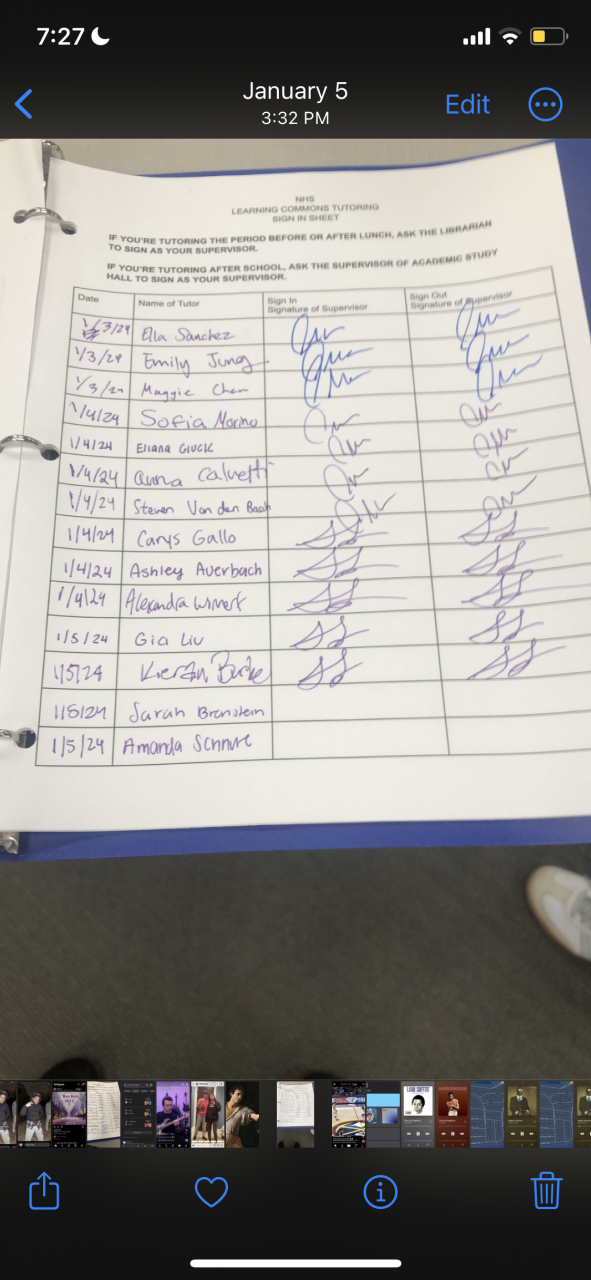 7:27
January 5
3:32 PM
Edit
NHS
LEARNING COMMONS TUTORING
SIGN IN SHEET
IF YOU'RE TUTORING THE PERIOD BEFORE OR AFTER LUNCH, ASK THE LIBRARIAN
TO SIGN AS YOUR SUPERVISOR.
IF YOU'RE TUTORING AFTER SCHOOL, ASK THE SUPERVISOR OF ACADEMIC STUDY
HALL TO SIGN AS YOUR SUPERVISOR.
Date Name of Tutor Sign In Signature of Supervisor Sign Out Signature of Supervisor
1/3/24 Ella Sanchez
1/3/24 Emily Jung
1/3/24 Maggie Chen
1/4/24 Sofia Marino
1/4/24 Eliana Gluck
1/4/24 anna calvetti
1/4/24 Steven Van den
1/4/24 Carys Gallo
1/4/24 Ashley Averbach
1/4/24 Alexandra
1/5/24 Gia Liu
1/5/24 Kieran Burke
1/5/24 Sarah
1/5/24 Amanda